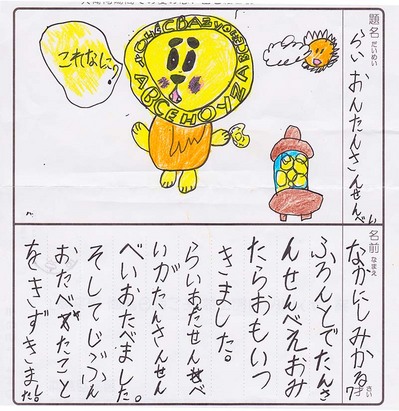 題名
だいめい
らいおんたんさんせんべい
これなに?
名前
なまえ
なかにしみかる
7才
さい
ふろんとでたんさ
んせんべえおみ
たらおもいつ
きました。
らいおだせんべ
いがたんさんせん
べいおたべました。
そしてじぶん
おたべたこと
をきずきました。